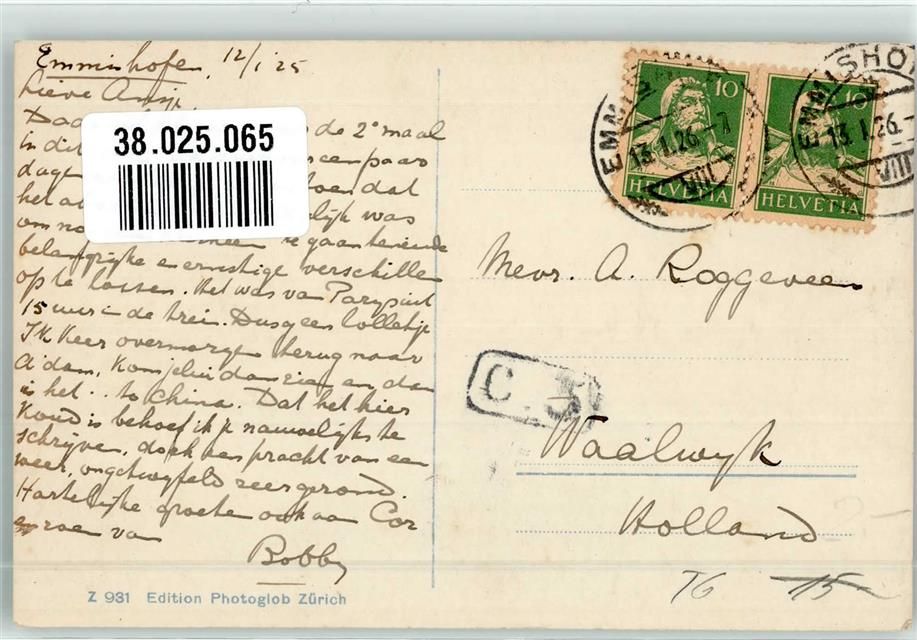 Emmishofen, 12/1 25
Lieve Ansje,
Daa de 2e maal
in dit een paar
dagen doen dat
het a lijk was
om no heen te gaan teneinde
belangrijke en ernstige verschillen
op te lossen. Het was van Parijs uit
15 uur in de trein. Dus geen lolletje
Ik keer overmorgen terug naar
A'dam, kom jelui dan zien en dan
is het .. to China. Dat het hier
koud is behoef ik je nauwelijks te
schrijven, doch een pracht van een
weer, ongetwyfeld zeer gezond.
Hartelijke groeten ook aan Cor
en van
Bobby
38.025.065
Z 931 Edition Photoglob Zürich
10 10
HELVETIA HELVETIA
EMMISHOFEN
13.I.26.-7
VIII
EMMISHOFEN
13.I.26.-
VIII
Mevr. A. Roggeveen
C. 3
Waalwyk
Holland
T6 15